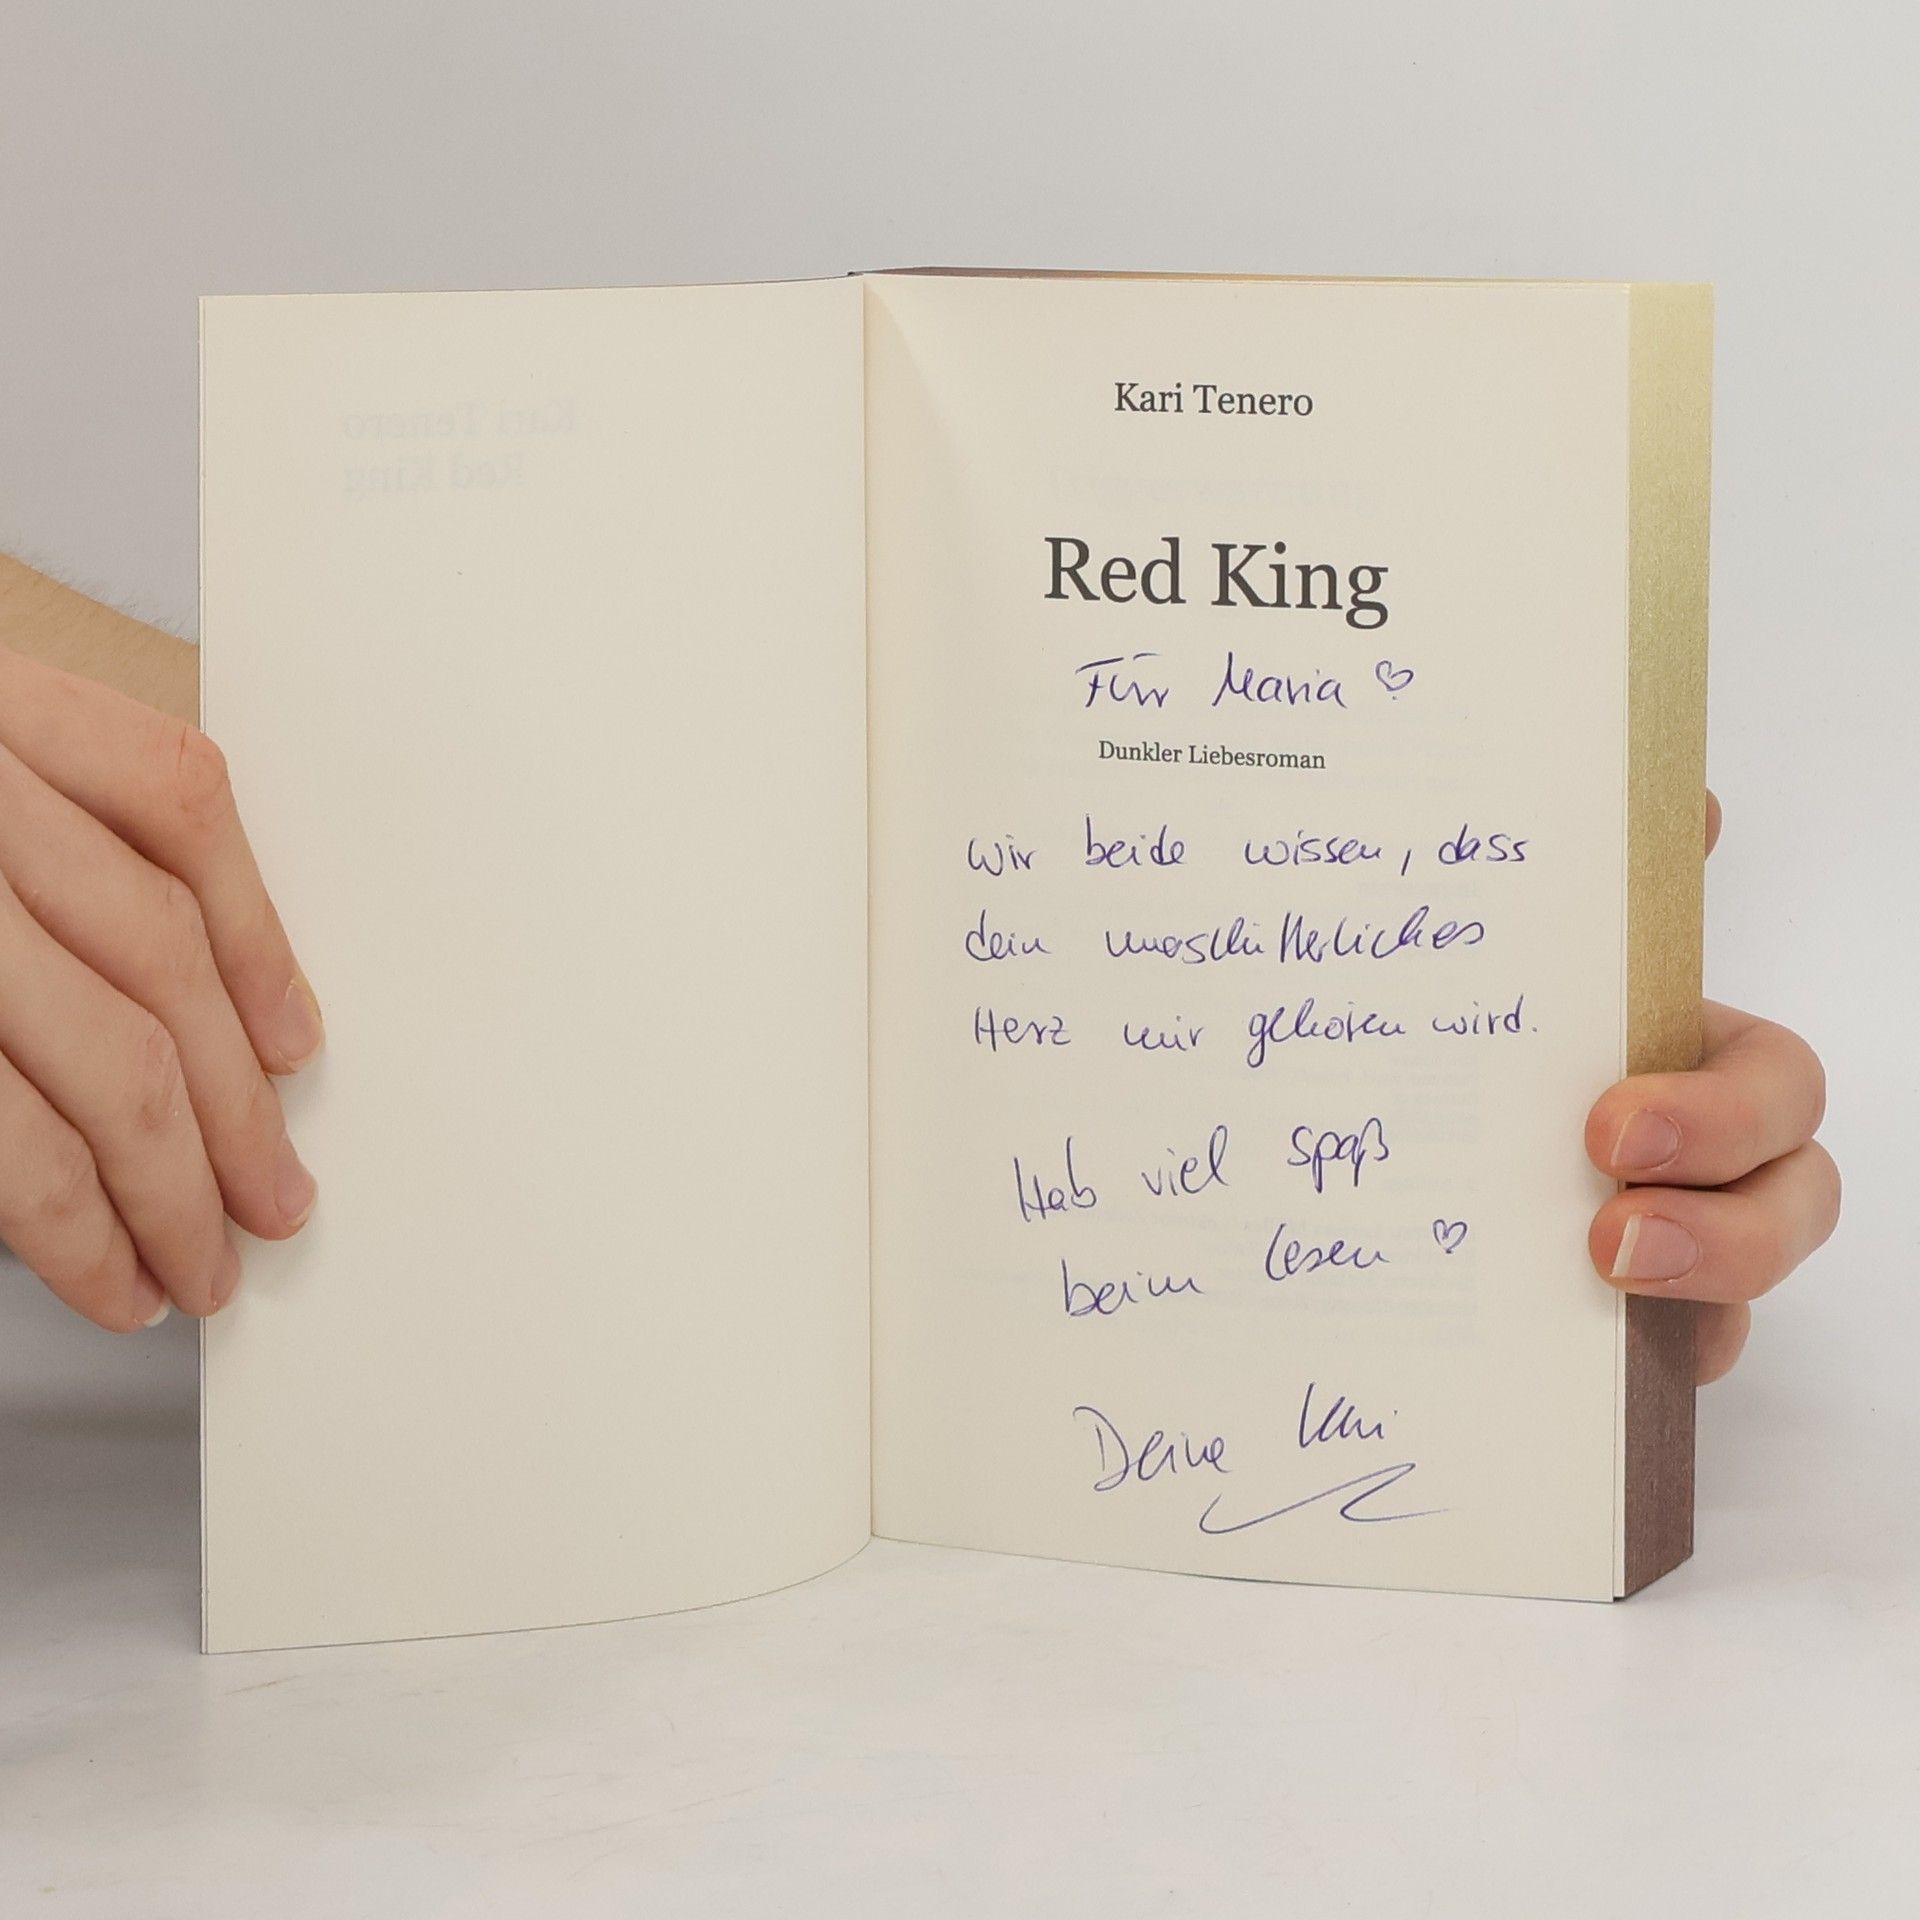 Kari Tenero
Red King
Kari Tenero
Red King
Für Maria ♡
Dunkler Liebesroman
Wir beide wissen, dass
dein unerschütterliches
Herz mir gehören wird.
Hab viel spaß
beim Lesen ♡
Deine Kari